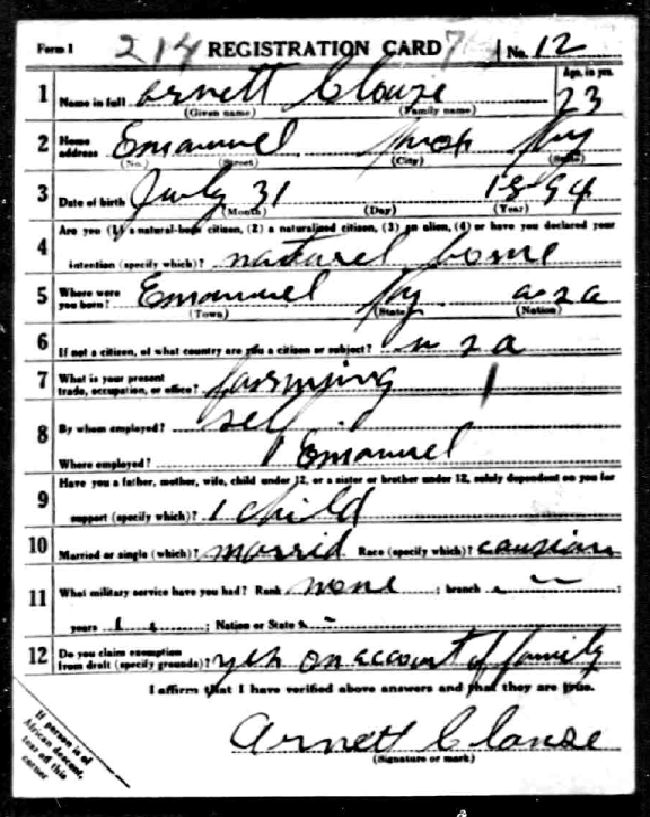 Form 1 214 REGISTRATION CARD No. 12
1 Name in full Arnett Clouse Age, in yrs. 23
(Given name) (Family name)
2 Home address Emanuel Ky
(No.) (Street) (City) (State)
3 Date of birth July 31 1894
(Month) (Day) (Year)
4 Are you (1) a natural-born citizen, (2) a naturalized citizen, (3) an alien, (4) or have you declared your
intention (specify which)? natural borne
5 Where were you born? Emanuel Ky usa
(Town) (State) (Nation)
6 If not a citizen, of what country are you a citizen or subject? u s a
7 What is your present trade, occupation, or office? farmying
8 By whom employed? self
Where employed? Emanuel
9 Have you a father, mother, wife, child under 12, or a sister or brother under 12, solely dependent on you for
support (specify which)? 1 child
10 Married or single (which)? marrid Race (specify which)?
11 What military service have you had? Rank none ; branch ;
years ; Nation or State
12 Do you claim exemption from draft (specify grounds)? yes on account of family
I affirm that I have verified above answers and that they are true.
Arnett Clouse
(Signature or mark)
If person is of
African descent,
tear off this
corner